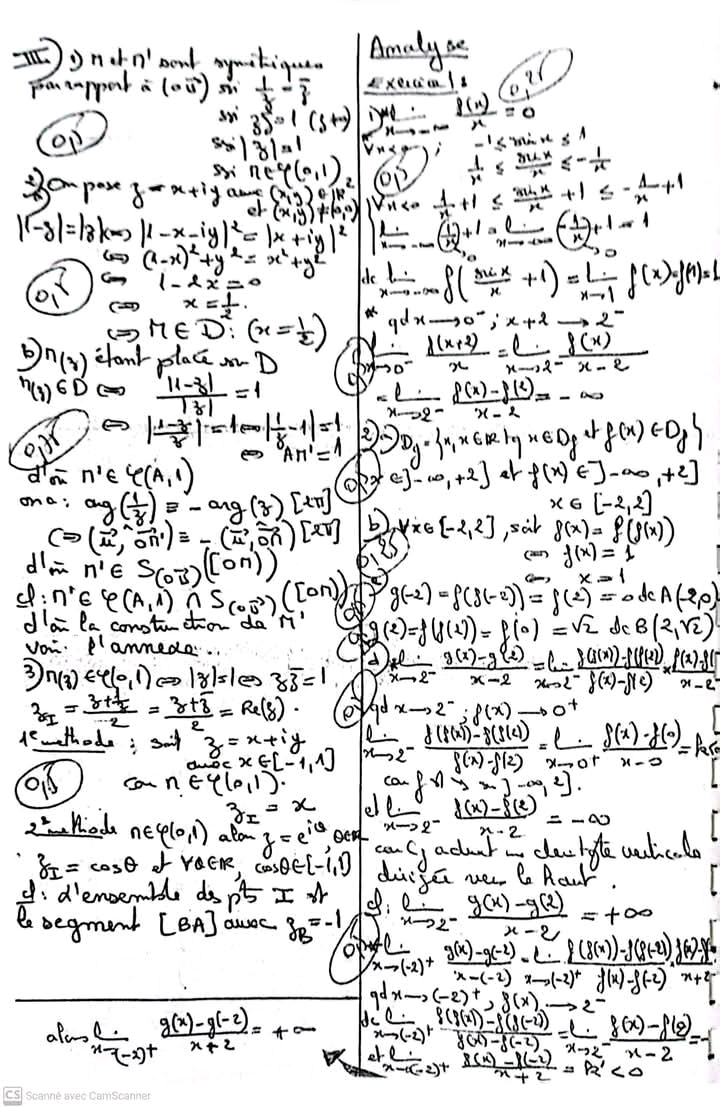 III) 1) M et M' sont symétriques
par rapport à (o u⃗) ssi 1/z = z̄
ssi z z̄ = 1 (z ≠ 0)
0,5
ssi |z| = 1
ssi M ∈ φ(0,1)
2) a) On pose z = x+iy avec (x,y) ∈ IR²
et (x,y) ≠ (0,0)
|1-z| = |z| ⇔ |1-x-iy|² = |x+iy|²
⇔ (1-x)² + y² = x² + y²
0,5
⇔ 1-2x = 0
⇔ x = 1/2
⇔ M ∈ D : (x = 1/2)
b) M(z) étant placé sur D
M(z) ∈ D ⇔ |1-z|/|z| = 1
⇔ |(1-z)/z| = 1 ⇔ |1/z - 1| = 1
⇔ AM' = 1
d'où M' ∈ φ(A,1)
on a : arg(1/z) ≡ - arg(z) [2π]
⇔ (u⃗, OM'⃗) ≡ - (u⃗, OM⃗) [2π]
d'où M' ∈ S(OU⃗)([OM))
cl : M' ∈ φ(A,1) ∩ S(OU⃗)([OM))
d'où la construction de M'
voir l'annexe..
3) M(z) ∈ φ(0,1) ⇔ |z| = 1 ⇔ z z̄ = 1
z_I = (z + 1/z)/2 = (z + z̄)/2 = Re(z).
1e methode : soit z = x+iy
avec x ∈ [-1,1]
0,5
car M ∈ φ(0,1).
z_I = x
2e methode M ∈ φ(0,1) alors z = e^{iθ}, θ ∈ IR
z_I = cosθ et ∀θ ∈ IR, cosθ ∈ [-1,1]
cl : d'ensemble des pts I est
le segment [BA] avec z_B = -1
alors lim x→(-2)+ (g(x)-g(-2))/(x+2) = +∞
Analyse
Exercice 1 :
0,25
1) lim x→-∞ f(x)/x = 0
∀x<0 ; -1 ≤ sin x ≤ 1
1/x ≤ sin x/x ≤ -1/x
∀x<0 1/x + 1 ≤ sin x/x + 1 ≤ -1/x + 1
lim x→-∞ (1/x) + 1 = lim x→-∞ (-1/x) + 1 = 1
dc lim x→-∞ f(sin x/x + 1) = lim x→1 f(x) = f(1) = 1
* qd x→0⁻ ; x+2 → 2⁻
lim x→0⁻ f(x+2)/x = lim x→2⁻ f(x)/(x-2)
= lim x→2⁻ (f(x)-f(2))/(x-2) = -∞
2) a) Dg = {x, x ∈ IR tq x ∈ Df et f(x) ∈ Df}
x ∈ ]-∞,+2] et f(x) ∈ ]-∞,+2]
x ∈ [-2,2]
b) ∀x ∈ [-2,2], soit g(x) = f(f(x))
⇔ f(x) = 1
⇔ x = 1
g(-2) = f(f(-2)) = f(2) = 0 dc A(-2,0)
g(2) = f(f(2)) = f(0) = √2 dc B(2,√2)
d) * lim x→2⁻ (g(x)-g(2))/(x-2) = lim x→2⁻ (f(f(x))-f(f(2)))/(f(x)-f(2)) × (f(x)-f(
x-2
qd x→2⁻ ; f(x) → 0⁺
lim x→2⁻ (f(f(x))-f(f(2)))/(f(x)-f(2)) = lim x→0⁺ (f(x)-f(0))/(x-0)
et lim x→2⁻ (f(x)-f(2))/(x-2) = -∞
car Cf admet une demi tgte verticale
dirigée vers le haut.
cl : lim x→2⁻ (g(x)-g(2))/(x-2) = +∞
* lim x→(-2)+ (g(x)-g(-2))/(x-(-2)) = lim x→(-2)+ (f(f(x))-f(f(-2)))/(f(x)-f(-2))
qd x→(-2)⁺, f(x) → 2⁻
dc lim x→(-2)+ (f(f(x))-f(f(-2)))/(f(x)-f(-2)) = lim x→2⁻ (f(x)-f(2))/(x-2) = -
et lim x→(-2)+ (f(x)-f(-2))/(x+2) = < 0
CS Scanné avec CamScanner